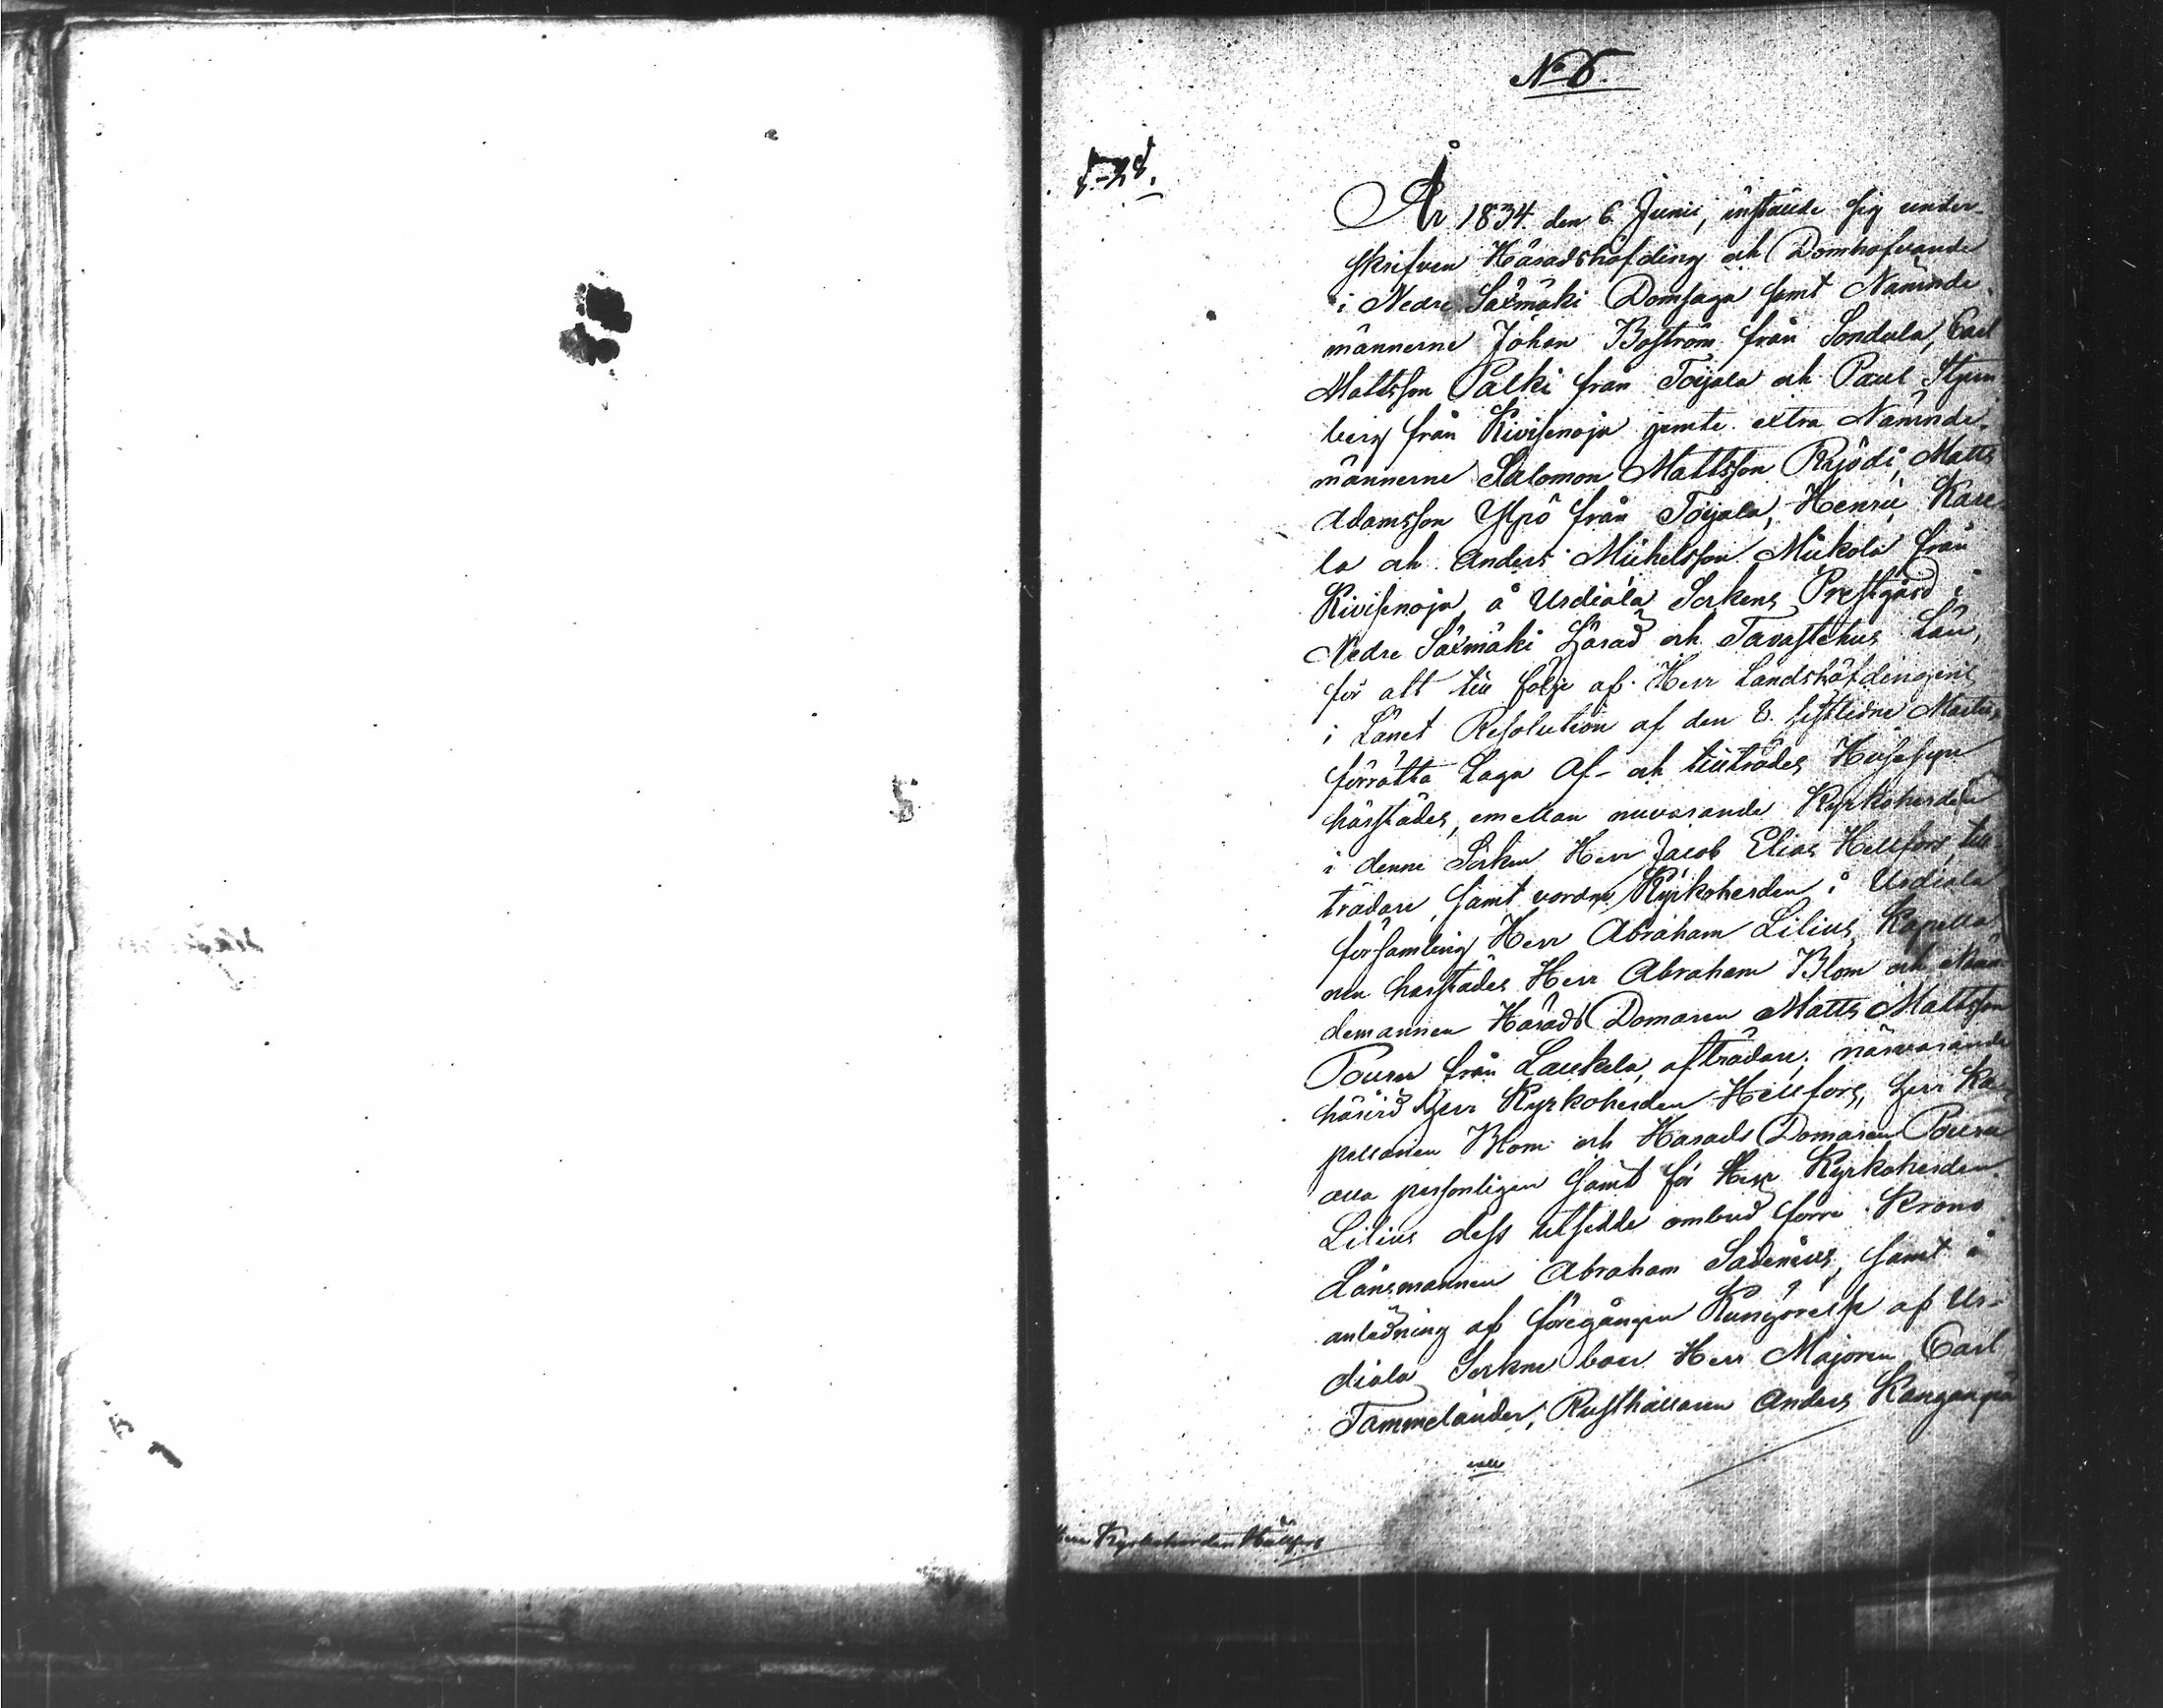 No 6.
År 1834. den 6 Junii, instälde sig under-
skrifven Häradshöfding och Domhafvande
i Nedre Säxmäki Domsaga samt Nämnde-
männerne Johan Boström från Sondala, Carl
Mattsson Palki från Toijala och Paul Stjern
berg från Kivisenoja jemte extra Nämnde-
männerne Salomon Mattsson Röjödi, Matts
Adamsson Ylpö från Toijala, Henric Kare
la och Anders Michelsson Mickola från
Kivisenoja, å Urdiala Sokens Prestgård i
Nedre Säxmäki Härad och Tavastehus Län,
för att till följe af Herr Landshöfdingens
i Länet Resolution af den 8. sistlidne Martii,
förrätta Laga Af- och tillträdes Husesyn
härstädes, emellan nuvarande Kyrkoherden
i denne Soken Herr Jacob Elias Hellfors, till
trädare, samt vordne Kyrkoherden i Urdiala
församling Herr Abraham Lilius, Kapella
nen härstädes Herr Abraham Blom och Näm
demannen Härads Domaren Matts Mattsson
Pouru från Laukela, afträdare; närvarande
härvid Herr Kyrkoherden Hellfors, Herr Ka-
pellanen Blom och Härads Domaren Pouru
alla personligen samt för Herr Kyrkoherden
Lilius dess utsedde ombud förre Krono
Länsmannen Abraham Sadenius, samt i
anledning af föregången Kungörelse af Ur-
diala Sokne boer Herr Majoren Carl
Tammelander, Rusthållaren Anders Kanganpä
Herr Kyrkoherden Hellfors